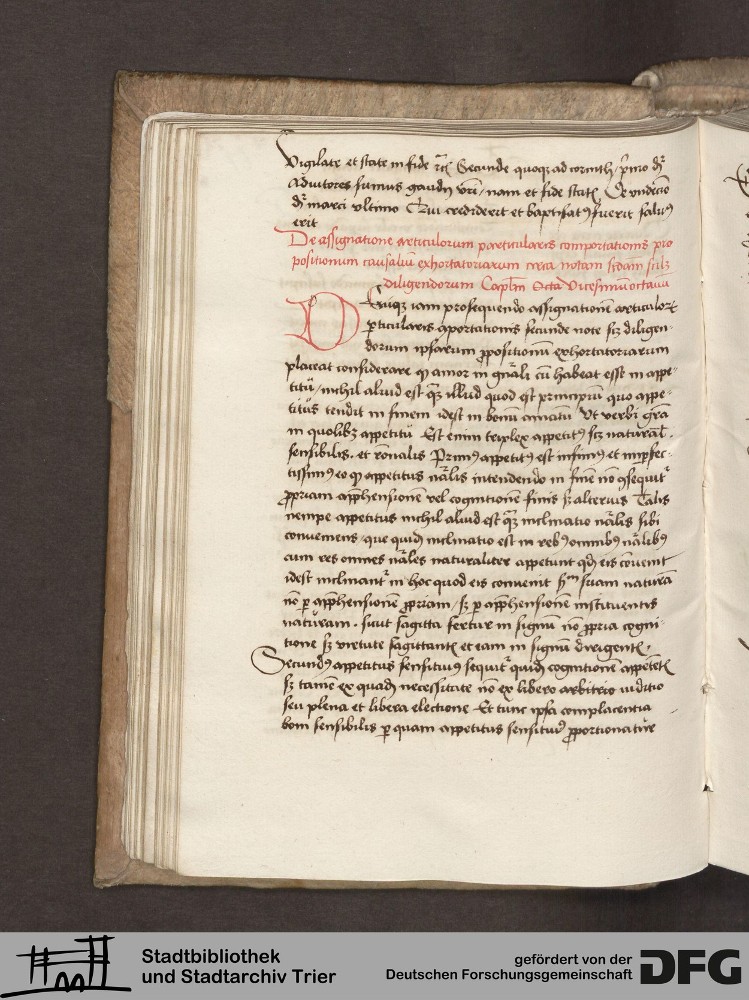 Vigilate et state in fide Secunde quoq ad corinth primo dr
Adiutores sumus gaudij vri nam et fide statis De
dr marci vltimo Qui crediderit et baptisatus fuerit saluus
erit
De assignatione articulorum particularis comportationis pro
positionum causaliu exhortatoriarum circa notam
diligendorum Caplm Octauuicesimum
Deniq iam prosequendo assignatione articulor
pticularis aportationis secunde note diligen-
dorum ipsarum ppositionu exhortatoriarum
placeat considerare q amor in gnali cu habeat esse in appe-
titu nichil aliud est q illud quod est principiu quo appe-
titus tendit in finem idest in bonu amatu Vt verbi gra
in quolib appetitu Est enim triplex appetitus naturalis
sensibilis et ronalis Primus appetitus est infimus et imperfec-
tissimus eo q appetitus nalis intendendo in fine no sequitr
ppriam apphensione vel cognitione finis alterius Talis
nempe appetitus nichil aliud est q inclinatio nalis sibi
conueniens que quid inclinatio est in rebus omnibus nalibus
cum res omnes nales naturaliter appetunt eis couenit
idest inclinantr in hoc quod eis conuenit suam natura
no p apphensione ppriam p apphensione instituentis
naturam sicut sagitta fertur in signu no ppria cogni-
tione virtute sagittantis et eam in signu dirigentis
Secundus appetitus sensitiuus sequitr quid cognitione appetetis
tamen ex quad necessitate no ex libero arbitrio iuditio
seu plena et libera electione Et tunc ipsa complacentia
boni sensibilis p quam appetitus sensitiuus pportionatur
Stadtbibliothek
und Stadtarchiv Trier
gefördert von der
Deutschen Forschungsgemeinschaft
DFG